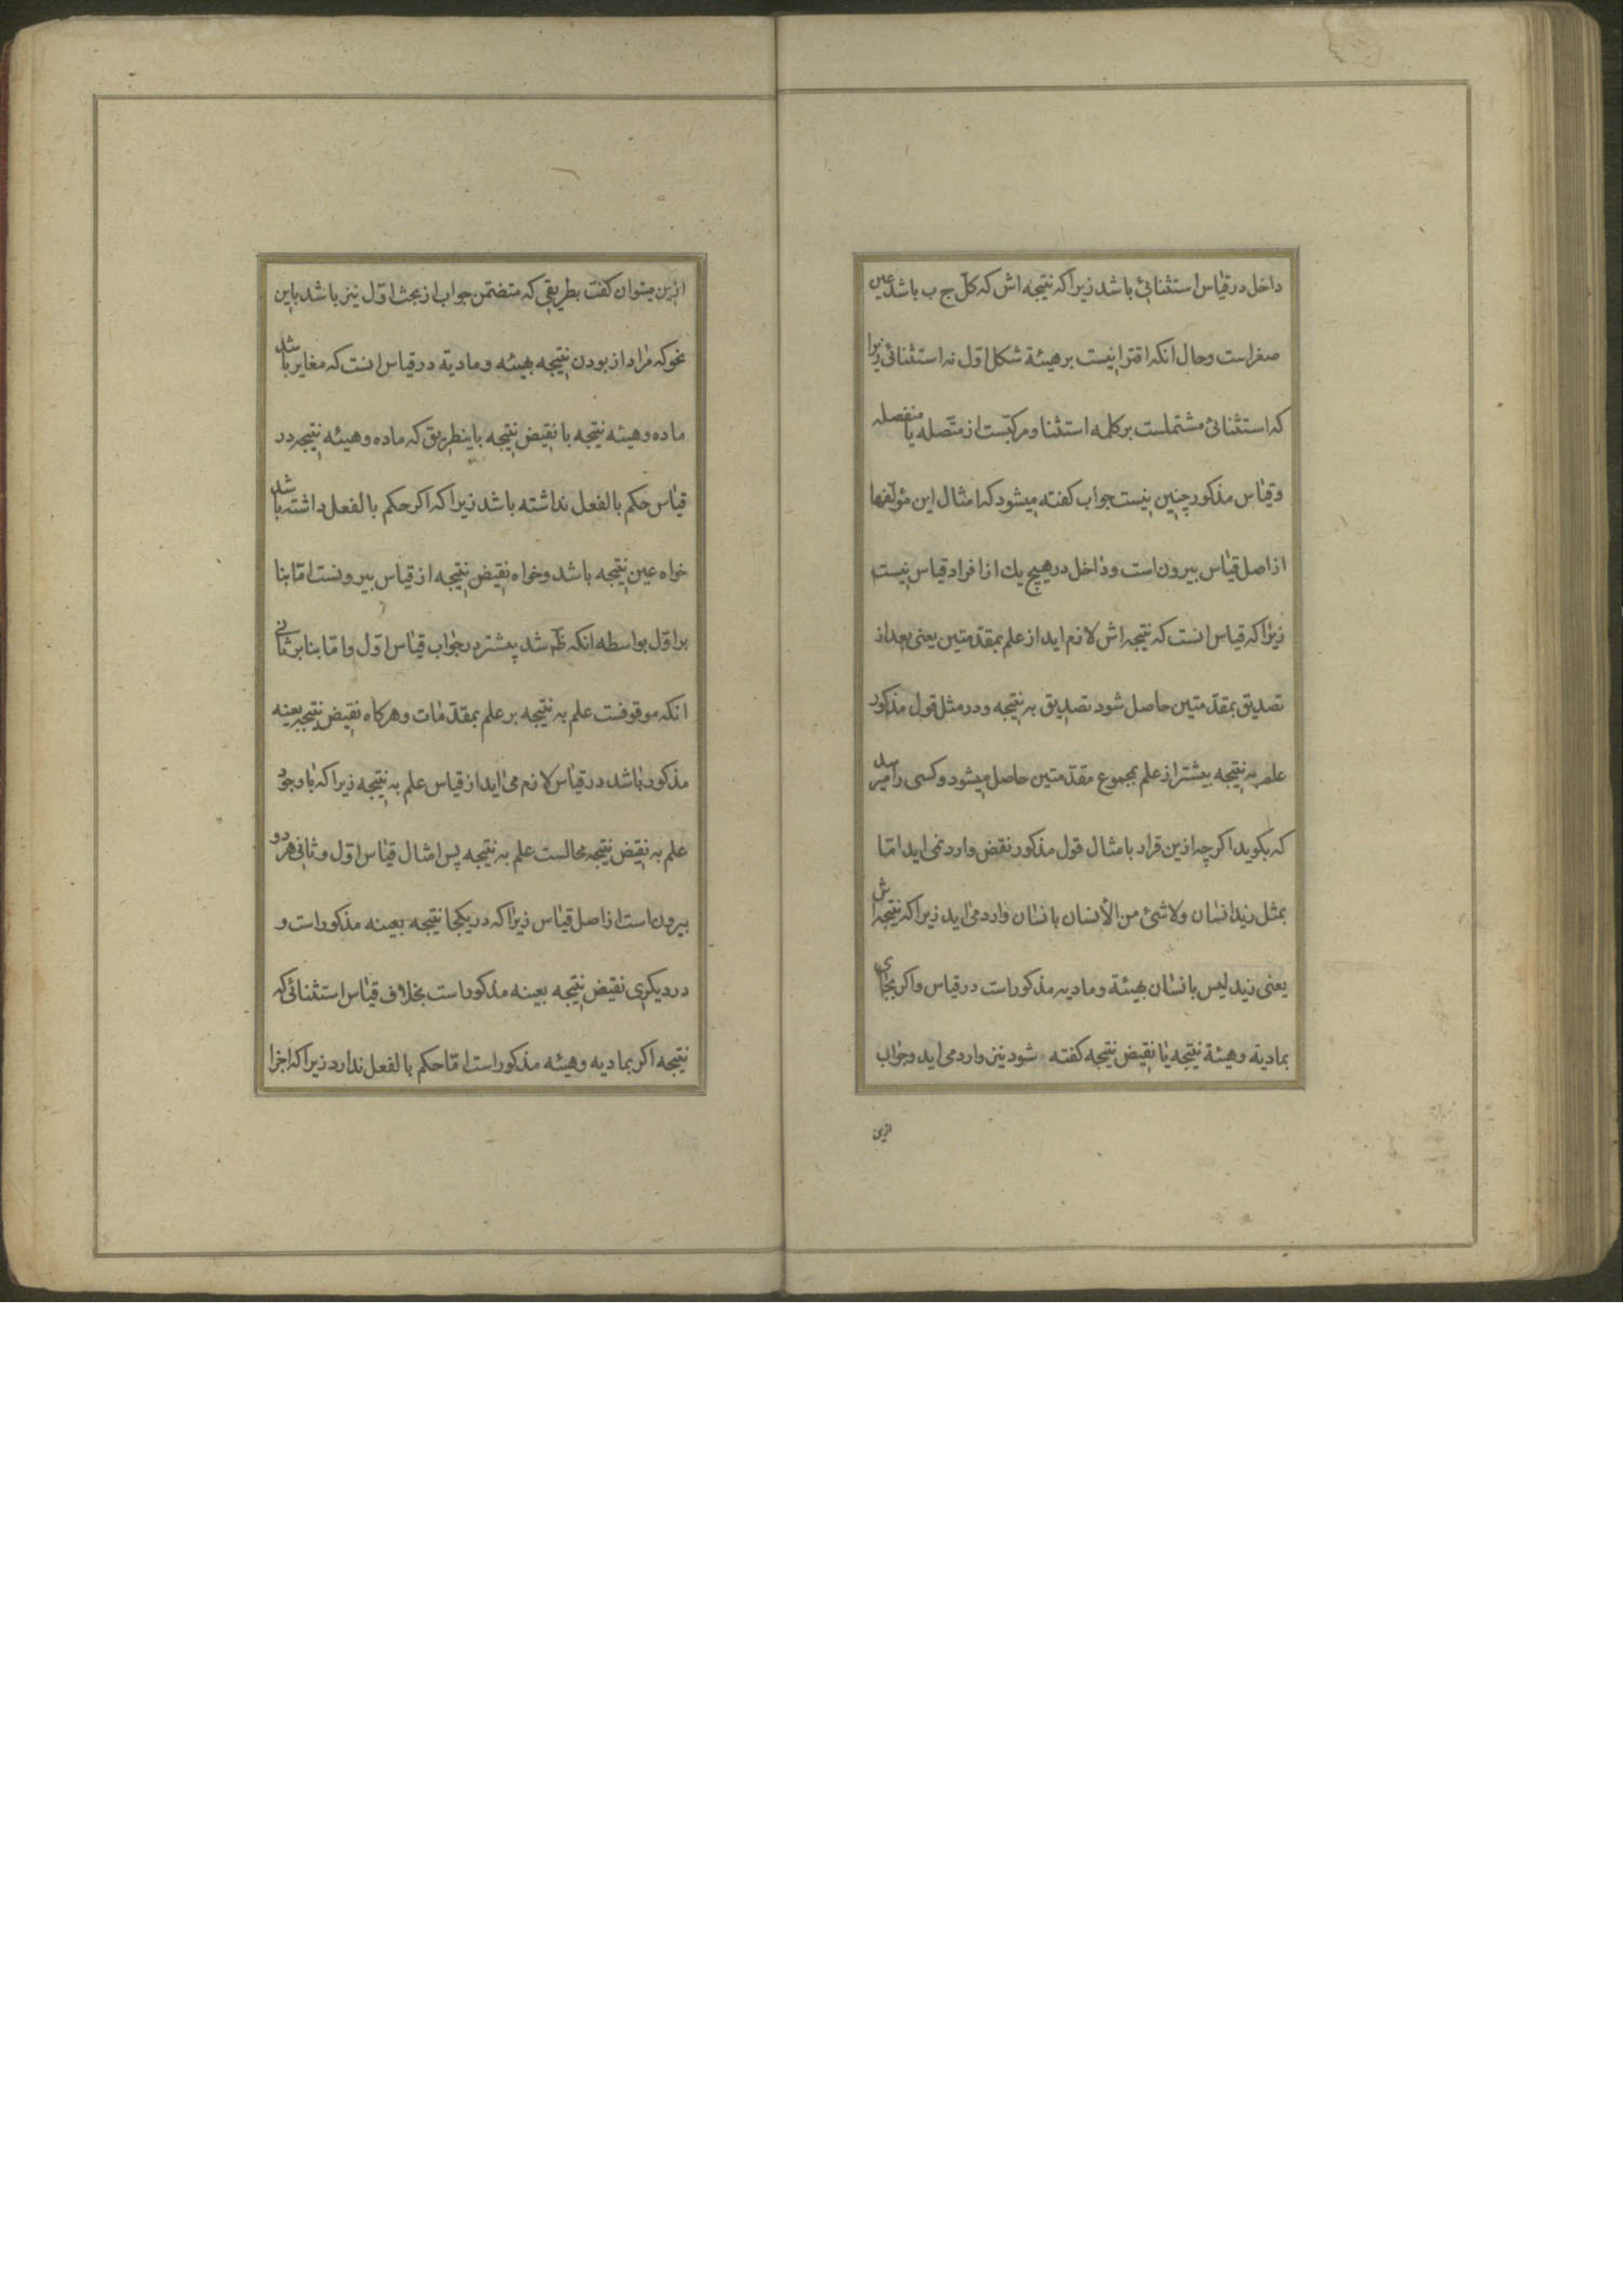 داخل در قیاس استثنائی باشد زیرا که نتیجه اش که کل ج ب باشد عین
صغراست و حال انکه اقترانیست بر هیئة شکل اول نه استثنائی زیرا
که استثنائی مشتملست بر کلمه استثنا و مرکبست از متّصله یا منفصله
و قیاس مذکور چنین نیست جواب کفته میشود که امثال این مؤلّفها
از اصل قیاس بیرون است و داخل در هیچ یك از افراد قیاس نیست
زیرا که قیاس انست که نتیجه اش لازم اید از علم بمقدّمتین یعنی بعد از
تصدیق بمقدّمتین حاصل شود تصدیق به نتیجه و در مثل قول مذکور
علم به نتیجه بیشتر از علم بمجموع مقدّمتین حاصل میشود و کسی را میرسد
که بکوید اکر چه ازین قرار بامثال قول مذکور نقض وارد نمی اید امّا
بمثل زید انسان ولا شئ من الأنسان بانسان وارد می اید زیرا که نتیجه اش
یعنی زید لیس بانسان بهیئة و مادیه مذکور است در قیاس و اکر بجای
بمادیة و هیئة نتیجه یا نقیض نتیجه کفته شود نیز وارد می اید و جواب
ازین
ازین میتوان کفت بطریقی که متضمّن جواب از بحث اوّل نیز باشد باین
نحو که مراد از بودن نتیجه بهیئه و مادیة در قیاس انست که مغایر باشد
ماده و هیئه نتیجه با نقیض نتیجه باینطریق که ماده و هیئه نتیجه در
قیاس حکم بالفعل نداشته باشد زیرا که اکر حکم بالفعل داشته باشد
خواه عین نتیجه باشد و خواه نقیض نتیجه از قیاس بیرونست امّا بنا
بر اوّل بواسطه انکه ظ شد پیشتر در جواب قیاس اوّل و امّا بنا بر ثانی
انکه موقوفست علم به نتیجه بر علم بمقدّمات و هر کاه نقیض نتیجه بعینه
مذکور باشد در قیاس لازم می اید از قیاس علم به نتیجه زیرا که با وجود
علم به نقیض نتیجه محالست علم به نتیجه پس امثال قیاس اوّل و ثانی هر دو
بیرون است از اصل قیاس زیرا که در یکجا نتیجه بعینه مذکور است و
در دیکری نقیض نتیجه بعینه مذکور است بخلاف قیاس استثنائی که
نتیجه اکر بمادیه و هیئه مذکور است امّا حکم بالفعل ندارد زیرا که اجزا